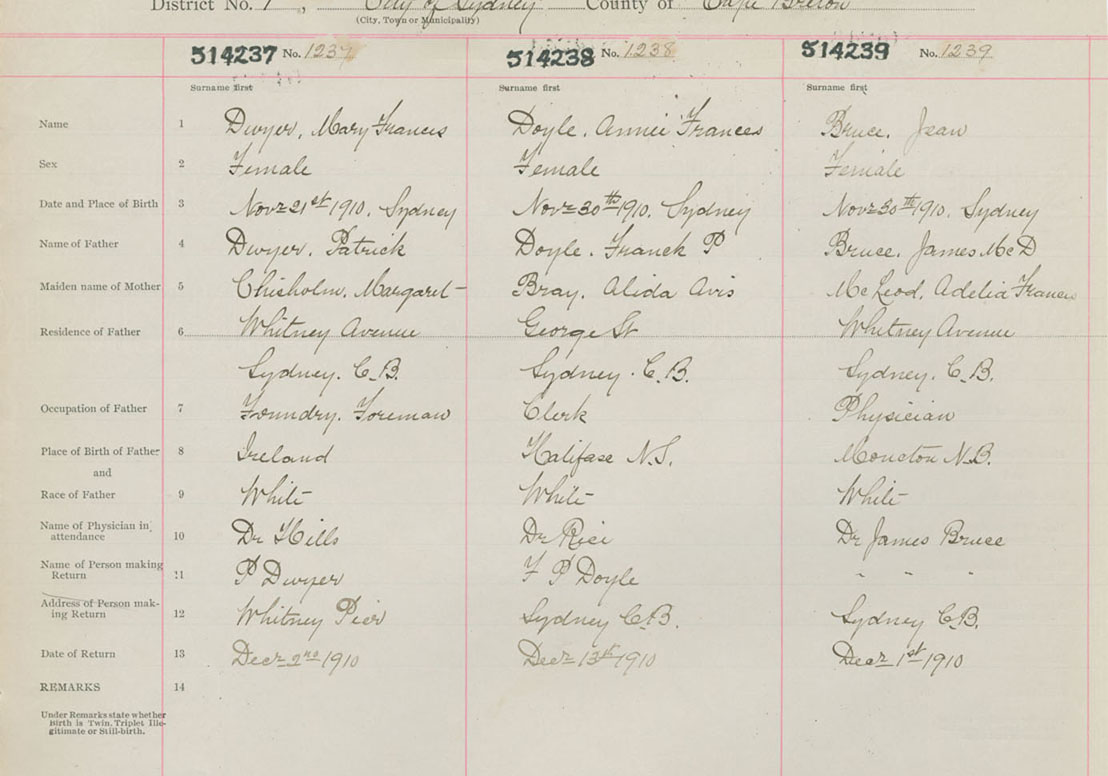 District No. 7, City of Sydney County of Cape Breton
(City, Town or Municipality)
514237 No. 1237 514238 No. 1238 514239 No. 1239
Surname first Surname first Surname first
Name 1 Dwyer, Mary Francis Doyle, Annie Frances Bruce, Jean
Sex 2 Female Female Female
Date and Place of Birth 3 Novr 21st 1910, Sydney Novr 30th 1910, Sydney Novr 30th 1910, Sydney
Name of Father 4 Dwyer, Patrick Doyle, Franck P Bruce, James McD
Maiden name of Mother 5 Chisholm, Margaret Bray, Alida Avis McLeod, Adelia Frances
Residence of Father 6 Whitney Avenue George St Whitney Avenue
Sydney. C.B. Sydney. C.B. Sydney. C.B.
Occupation of Father 7 Foundry. Foreman Clerk Physician
Place of Birth of Father 8 Ireland Halifax N.S. Moncton N.B.
and
Race of Father 9 White White White
Name of Physician in attendance 10 Dr Hills Dr Rice Dr James Bruce
Name of Person making Return 11 P Dwyer F P Doyle " " "
Address of Person making Return 12 Whitney Pier Sydney C.B. Sydney C.B.
Date of Return 13 Decr 2nd 1910 Decr 13st 1910 Decr 1st 1910
REMARKS 14
Under Remarks state whether
Birth is Twin, Triplet Ille-
gitimate or Still-birth.